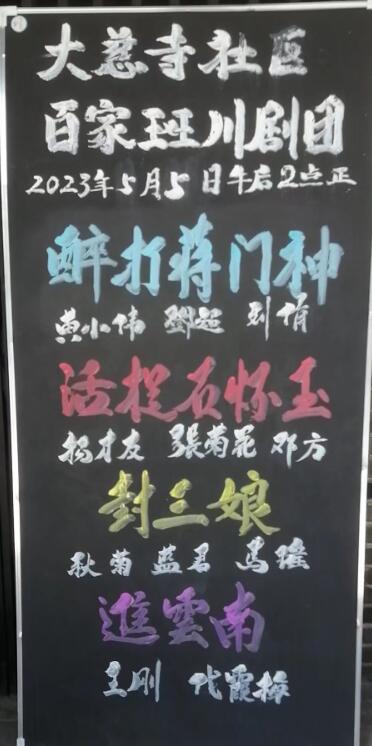 大慈寺社区
百家班川剧团
2023年5月5日午后2点正
醉打蒋门神
黄小伟 鄧超 刘情
活捉石怀玉
杨才友 張菊花 邓方
封三娘
耿菊 蓝君 马瑶
進雲南
王刚 代霞梅